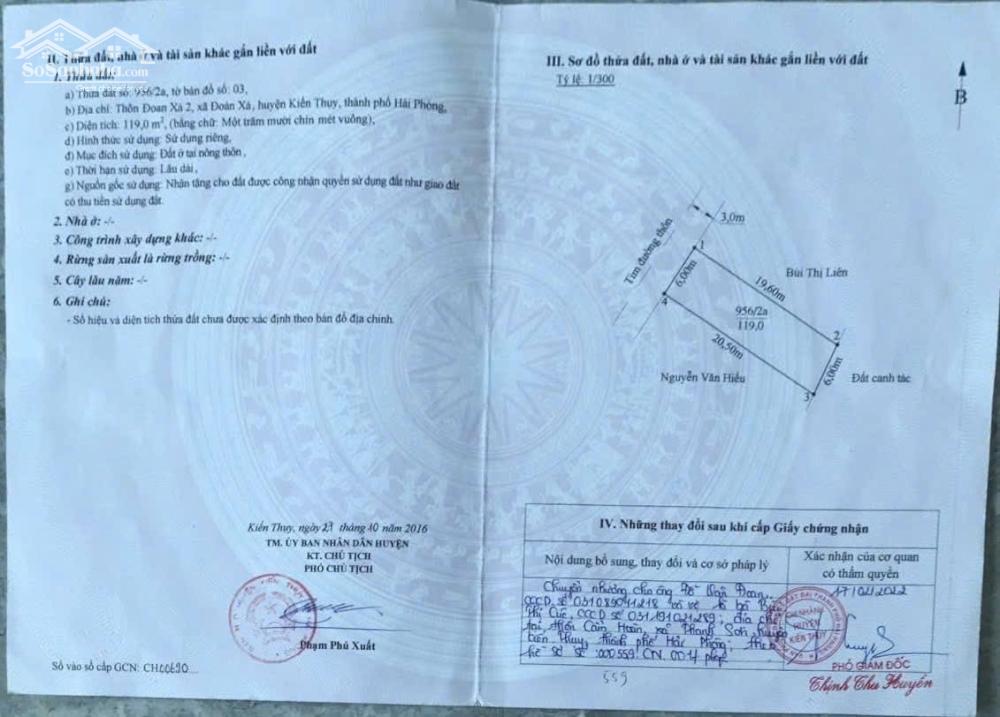 SoSanhnha.com
II. Thửa đất, nhà ở và tài sản khác gắn liền với đất
1. Thửa đất:
a) Thửa đất số: 956/2a, tờ bản đồ số: 03,
b) Địa chỉ: Thôn Đoan Xá 2, xã Đoàn Xá, huyện Kiến Thuỵ, thành phố Hải Phòng,
c) Diện tích: 119,0 m², (bằng chữ: Một trăm mười chín mét vuông),
d) Hình thức sử dụng: Sử dụng riêng,
đ) Mục đích sử dụng: Đất ở tại nông thôn,
e) Thời hạn sử dụng: Lâu dài,
g) Nguồn gốc sử dụng: Nhận tặng cho đất được công nhận quyền sử dụng đất như giao đất
có thu tiền sử dụng đất.
2. Nhà ở: -/-
3. Công trình xây dựng khác: -/-
4. Rừng sản xuất là rừng trồng: -/-
5. Cây lâu năm: -/-
6. Ghi chú:
- Số hiệu và diện tích thửa đất chưa được xác định theo bản đồ địa chính.
Kiến Thuỵ, ngày 27 tháng 10 năm 2016
TM. ỦY BAN NHÂN DÂN HUYỆN
KT. CHỦ TỊCH
PHÓ CHỦ TỊCH
Phạm Phú Xuất
Số vào sổ cấp GCN: CH00690
III. Sơ đồ thửa đất, nhà ở và tài sản khác gắn liền với đất
Tỷ lệ: 1/300
B
3,0m
Tim đường thôn
1
6,00m
4
19,60m
Bùi Thị Liên
956/2a
119,0
20,50m
2
Nguyễn Văn Hiếu
6,00m
3
Đất canh tác
IV. Những thay đổi sau khi cấp Giấy chứng nhận
Nội dung bổ sung, thay đổi và cơ sở pháp lý
Xác nhận của cơ quan
có thẩm quyền
Chuyển nhượng cho ông Đỗ Văn Đoan,
CCCD số 031089011218 và vợ là bà
Thị Cúc, CCCD số 031191021289; địa chỉ
tại thôn Cẩm Hoàn, xã Thanh Sơn, huyện
Kiến Thuỵ, thành phố Hải Phòng; theo
hồ sơ số 000559.CN.001
17/02/2022
CHI NHÁNH
HUYỆN
KIẾN THUỴ
PHÓ GIÁM ĐỐC
Thịnh Thu Huyền
559